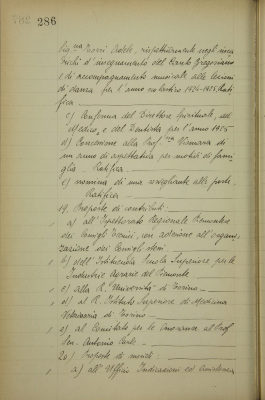 286
Sig.na Torri Adele, rispettivamente negli inca
richi d'insegnamento del Canto Gregoriano
e di accompagnamento musicale alle lezioni
di danza per l'anno scolastico 1924-1925. Rati
fica.
c) Conferma del Direttore Spirituale, del
Medico, e del Dentista per l'anno 1925
d) Concessione alla Prof.ssa
di un anno di aspettativa per motivi di fami
glia. Ratifica.
e) nomina di una sorvegliante alle porte.
Ratifica
19. Proposte di contributi.
a) all'Ispettorato Regionale Piemontese
dei Consigli Tecnici, con adesione all'organiz
zazione dei Consigli stessi.
b) dell'Istituenda Scuola Superiore per le
Industrie Agrarie del Piemonte
c) alla R. Università di Torino
d) al R. Istituto Superiore di Medicina
Veterinaria di Torino
e) al Comitato per le Onoranze al Prof.
Sen. Antonio Carle.
20) Proposte di sussidi.
a) all'Ufficio Indicazioni ed Assistenza